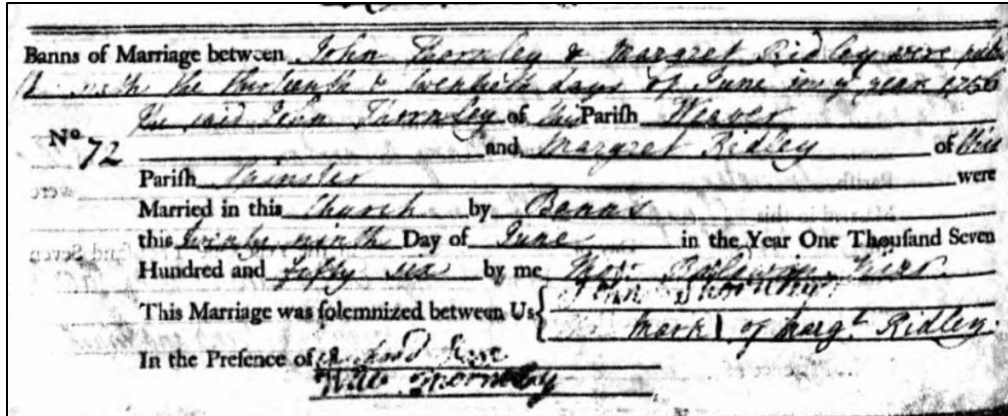 Banns of Marriage between John Thornley & Margret Ridley were pub
the thirteenth & twentieth days of June in y year 1756
The said John Thornley of this Parish Weaver
No 72 and Margret Ridley of this
Parish Spinster were
Married in this Church by Banns
this twenty ninth Day of June in the Year One Thousand Seven
Hundred and fifty six by me Baldwin Vicar
This Marriage was solemnized between Us John Thornley
mark of Margt Ridley
In the Presence of
Thornley